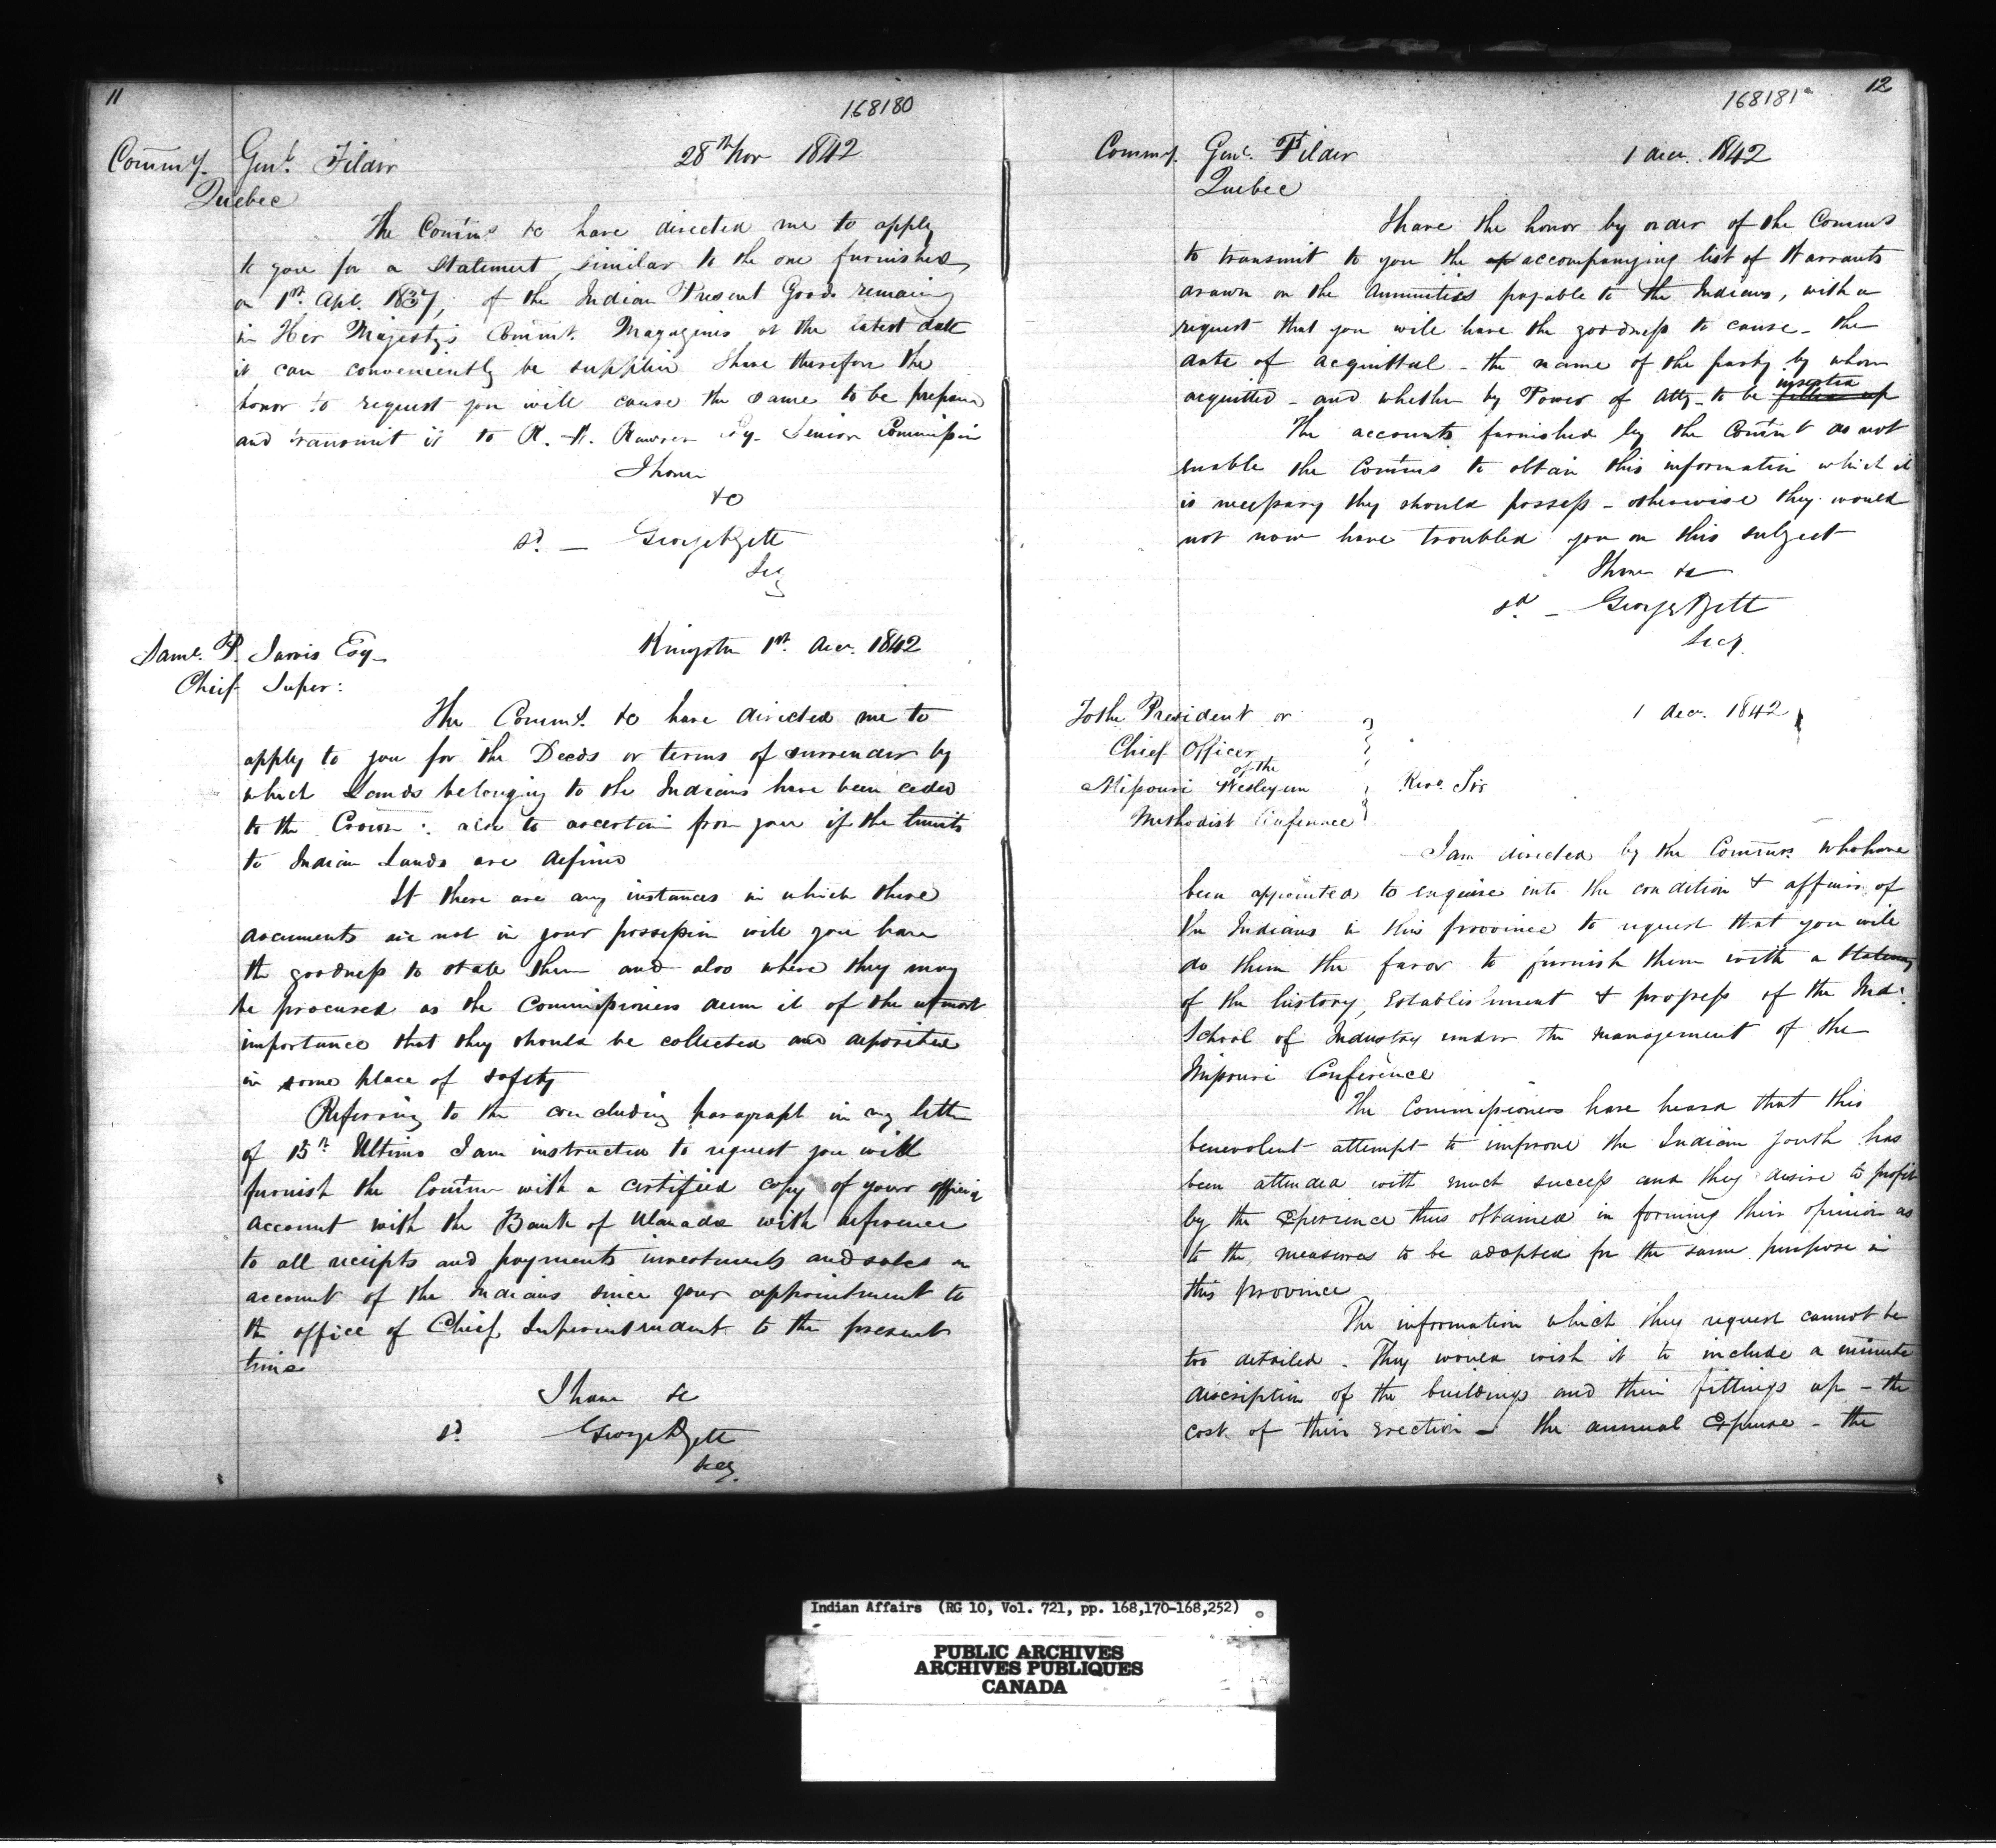 11
168180
Commy. Genl. Filder 28th Nov 1842
Quebec
The Comms &c have directed me to apply
to you for a Statement, similar to the one furnished
on 1st Apl. 1837, of the Indian Present Goods remaining
in Her Majesty's Commt. Magazines at the latest date
it can conveniently be supplied I have therefore the
honor to request you will cause the same to be prepared
and transmit it to R. W. Rawson Esq. Senior Commission
I have
&c
sd. — George
Secy
Saml. P. Jarvis Esq. Kingston 1st Decr. 1842
Chief Super:
The Commrs. &c have directed me to
apply to you for the Deeds or terms of surrender by
which Lands belonging to the Indians have been ceded
to the Crown: also to ascertain from you if the limits
to Indian Lands are defined
If there are any instances in which these
documents are not in your possession will you have
the goodness to state them and also where they may
be procured as the Commissioners deem it of the utmost
importance that they should be collected and deposited
in some place of safety
Referring to the concluding paragraph in my letter
of 15th Ultimo I am instructed to request you will
furnish the Commrs with a certified copy of your official
account with the Bank of U Canada with reference
to all receipts and payments investments and sales on
account of the Indians since your appointment to
the office of Chief Superintendent to the present
time
I have &c
sd. George
Secy.
12
168181
Commy. Genl. Filder 1 Decr. 1842
Quebec
I have the honor by order of the Comms
to transmit to you the ap accompanying list of Warrants
drawn on the Annuities payable to the Indians, with a
request that you will have the goodness to cause - the
date of acquittal - the name of the party by whom
acquitted - and whether by Power of Atty - to be filled up inserted
The accounts furnished by the Commt do not
enable the Comms to obtain this information which it
is necessary they should possess - otherwise they would
not now have troubled you on this subject
I have &c
sd — George
Secy.
To the President or 1 Decr. 1842
Chief Officer
of the
Missouri Wesleyan Revd. Sir
Methodist Conference
I am directed by the Comms. who have
been appointed to enquire into the condition & affairs of
the Indians in this province to request that you will
do them the favor to furnish them with a
of the history, Establishment & progress of the Indn.
School of Industry under the management of the
Missouri Conference
The Commissioners have heard that this
benevolent attempt to improve the Indian youth has
been attended with much success and they desire to profit
by the Experience thus obtained in forming their opinion as
to the measures to be adopted for the same purpose in
this province
The information which they request cannot be
too detailed. They would wish it to include a minute
description of the buildings and their fittings up - the
cost of their erection - the annual Expense - the
Indian Affairs (RG 10, Vol. 721, pp. 168,170-168,252)
PUBLIC ARCHIVES
ARCHIVES PUBLIQUES
CANADA